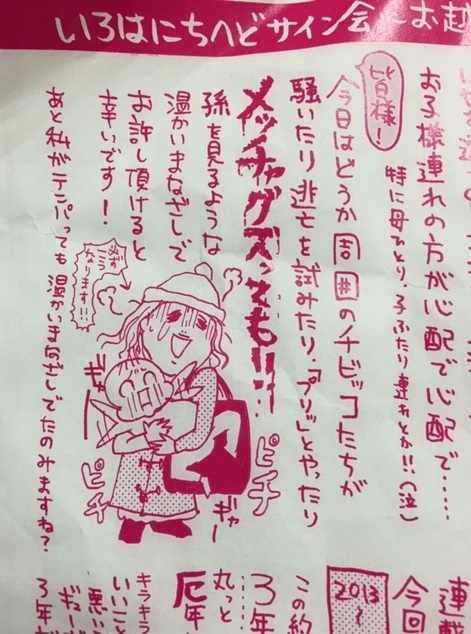 いろはにちへどサイン会にお越
お子様連れの方が心配で心配で……
特に母ひとり、子ふたり連れとか!!(泣)
皆様!
今日はどうか周囲のチビッコたちが
騒いだり逃亡を試みたり、「ブリッ」とやったり
メッチャグズっても!!
孫を見るような
温かいまなざしで
お許し頂けると
幸いです!
あと私がテンパっても温かいまなざしでたのみますね?
必ず
なります!!!
ギャー
ピチ
ピチ
ギャー
連載
今回
2013
～
この約
3年
丸っと
厄年
キラキラ
いいこと
悪い
ギュー
3年